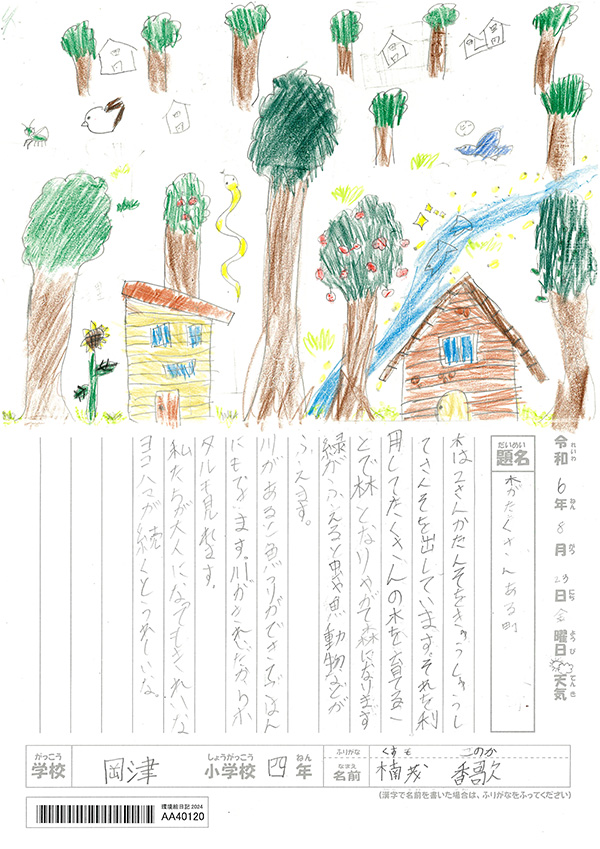 令和6年8月23日金曜日天気
れいわ ねん がつ にち ようび てんき
だいめい
題名
木がたくさんある町
木は二さんかたんそをきゅうしゅうし
てさんそを出しています。それを利
用してたくさんの木を育てるこ
とで林となりやがて森になります
緑がふえると虫や魚、動物などが
ふえます。
川があると魚つりができてごはん
にもなります。川がきれいだからホ
タルも見れます。
私たちが大人になってもきれいな
ヨコハマが続くとうれしいな。
がっこう しょうがっこう ねん
学校 岡津 小学校 四 年
ふりがな くすも このか
なまえ
名前 楠茂 香歌
(漢字で名前を書いた場合は、ふりがなをふってください)
環境絵日記2024
AA40120